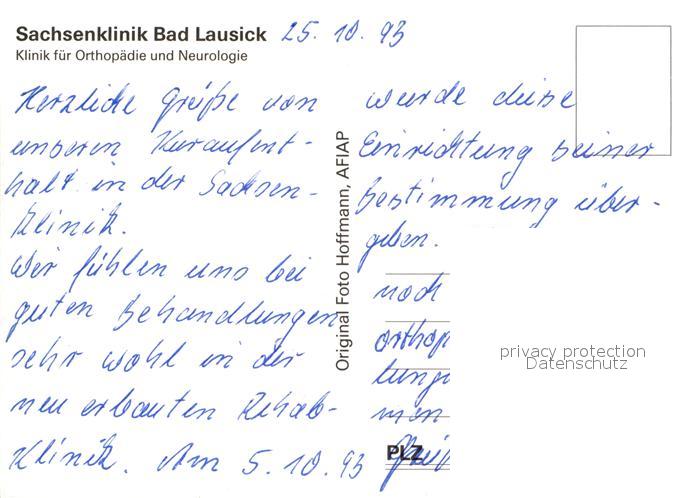 Sachsenklinik Bad Lausick 25. 10. 93
Klinik für Orthopädie und Neurologie
Herzliche Grüße von
unseren Kuraufent-
halt in der Sachsen-
klinik.
Wir fühlen uns bei
guten Behandlungen
sehr wohl in der
neu erbauten Rehab-
Klinik. Am 5. 10. 93
Original Foto Hoffmann, AFIAP
wurde diese
Einrichtung seiner
Bestimmung über-
geben.
noch
orthop
tung
men
PLZ
privacy protection
Datenschutz